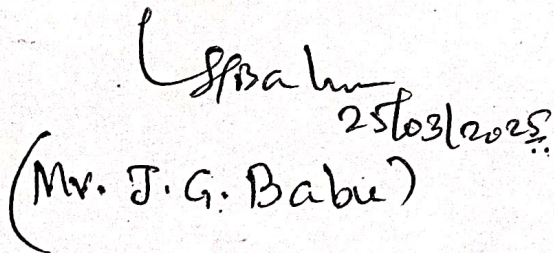 25/03/2025
(Mr. J. G. Babu)